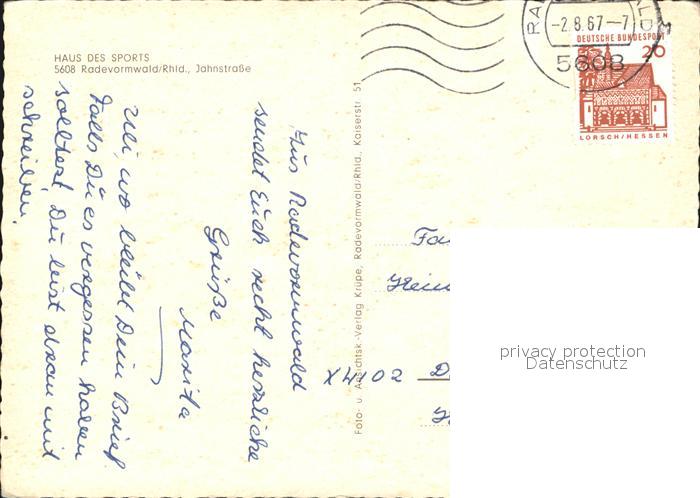 HAUS DES SPORTS
5608 Radevormwald/Rhld., Jahnstraße
Aus Radevormwald
sendet Euch recht herzliche
Grüße
Marita
Uli, wo bleibt Dein Brief.
Falls Du es vergessen haben
solltest, Du bist dran mit
schreiben.
Foto- u. Ansichtsk.-Verlag Krüpe, Radevormwald/Rhld., Kaiserstr. 51
-2.8.67--7
5608
DEUTSCHE BUNDESPOST
20
LORSCH/HESSEN
Fa
Hein
X4102 D
privacy protection
Datenschutz